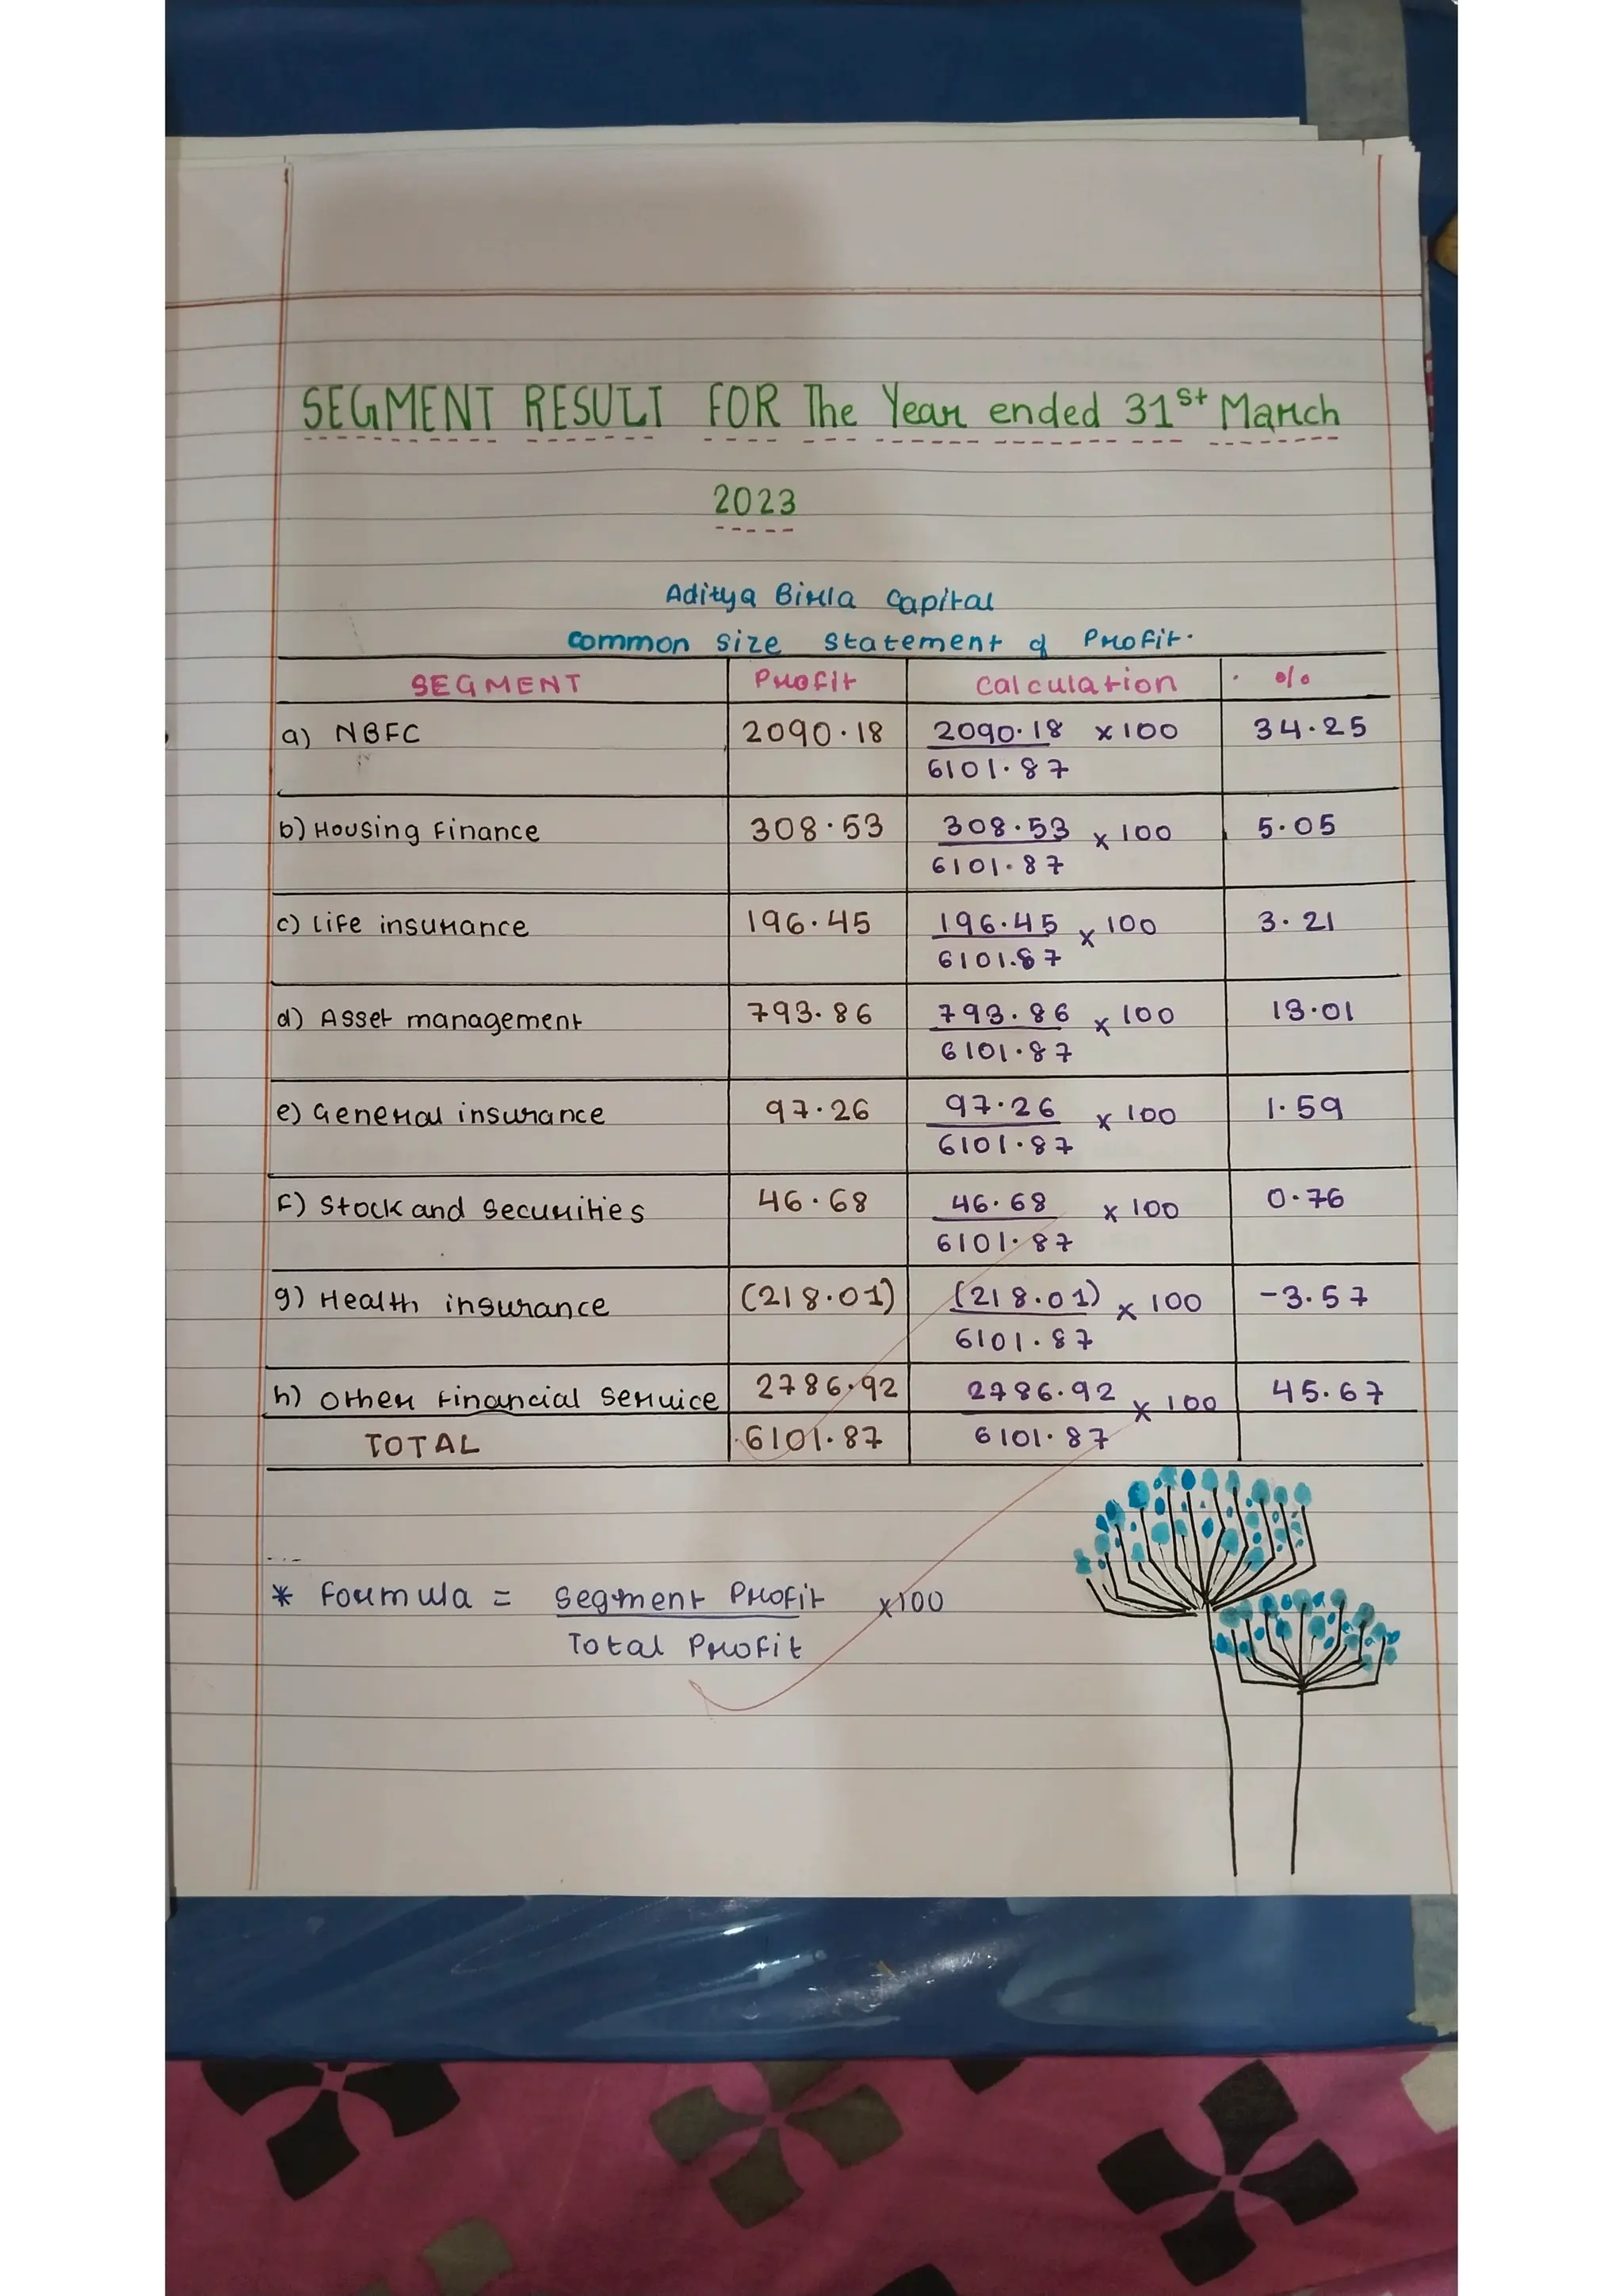 SEGMENT RESULT FOR The Year ended 31st March
2023
Aditya Birla Capital
Common size statement of Profit.
SEGMENT Profit Calculation %
a) NBFC 2090.18 2090.18 x 100 34.25
6101.87
b) Housing Finance 308.53 308.53 x 100 5.05
6101.87
c) Life insurance 196.45 196.45 x 100 3.21
6101.87
d) Asset management 793.86 793.86 x 100 13.01
6101.87
e) General insurance 97.26 97.26 x 100 1.59
6101.87
f) Stock and Securities 46.68 46.68 x 100 0.76
6101.87
g) Health insurance (218.01) (218.01) x 100 -3.57
6101.87
h) Other Financial Service 2786.92 2786.92 x 100 45.67
TOTAL 6101.87 6101.87
* Formula = Segment Profit x100
Total Profit